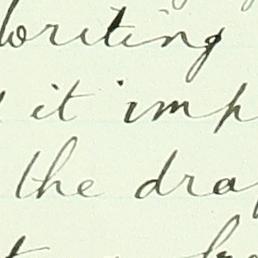 writing
it imp
the dra